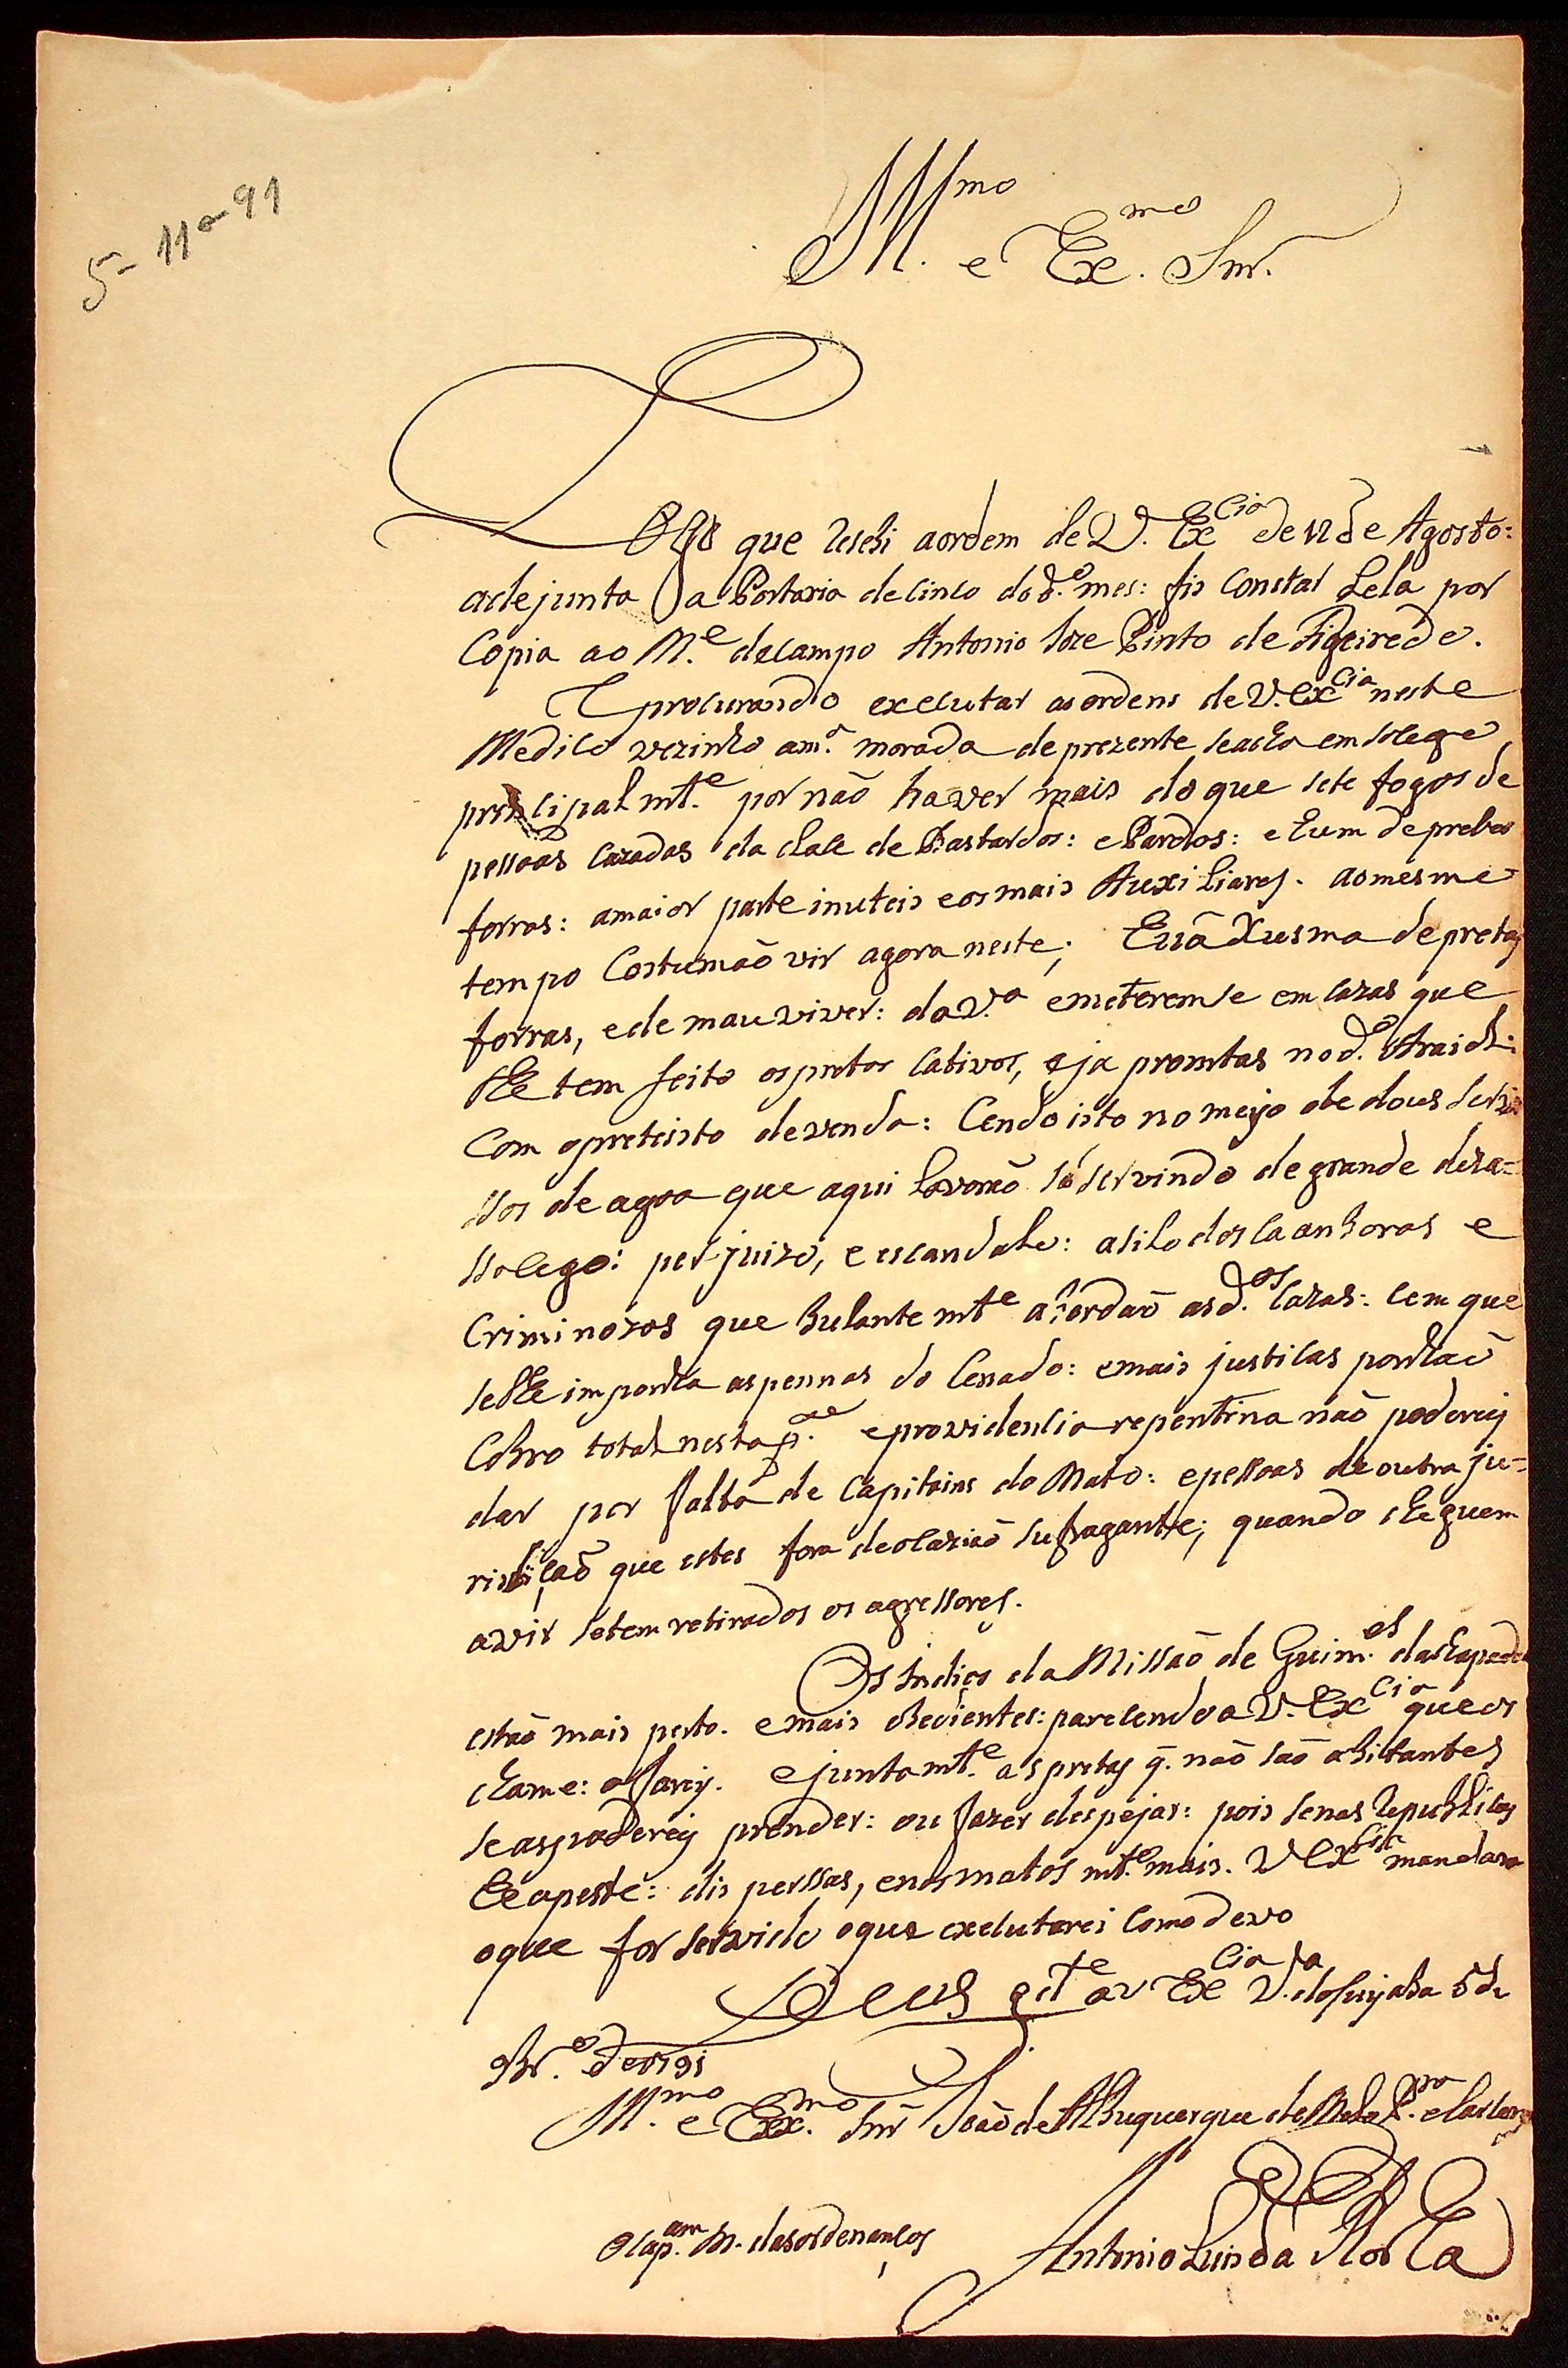 5-11-91
Ill.mo e Ex.mo Snr.
Logo que resebi aordem de V. Ex.cia de 12 de Agosto:
adejunta a Portaria de Sinco do d.o mes: fis constar hela por
Copia ao M.e decampo Antonio Joze Pinto de Figeiredo.
E procurando executar asordens de V. Ex.cia neste
Medico vezinho am.a morada deprezente seacha em socego
principal mt.e por naõ haver mais do que sete fogos de
pessoas cazadas da clace de Bastardos: e Pardos: e hum de pretos
forros: amaior parte inuteis eos mais Auxiliares. aomesmo
tempo Costumaõ vir agora neste; hua Xusma depretas
forras, ede mau viver: da V.a emeteremse em cazas que
lhe tem feito ospretos cativos, eja promtas nod.o Araial:
Com opreteisto devenda: Cendo isto no meyo de dous servi
ssos de agoa que aqui Lavoraõ so servindo degrande deza=
ssocego: perjuizo, e escandalo: asilo dos Caanboras e
Criminozos que bulante mt.e abordaõ asd.as Cazas: cem que
selhe imponha aspennas do Cenado: emais justicas ponhaõ
Cobro total nesta p.te eprovidencia repentina naõ poderey
dar por falta de Capitains do Mato: epessoas de outra ju=
risdiçaõ que estes fora deocaziaõ sufragante; quando cheguem
avir setem retirados os agressores.
Os Indios da Missaõ de Guim.es daChapada
estaõ mais perto. emais obedientes: parecendo a V. Ex.cia que os
chame: ofarey. ejuntamt.e aspretas q. naõ saõ abitantes
seaspoderey prender: ou fazer despejar: pois senas Republicas
he apeste: dis perssas, enosmatos mt.o mais. V Ex.cia mandara
oque for servido oque exelutarei como devo
Deus g.de a V Ex.cia V.a do Cuyaba 5 de
9br.o de 1791
Ill.mo e Ex.mo Snr Joaõ de Albuquerque de Melo P.ra e Caceres
O Cap.am M. dasordenanças
Antonio Luis da Rocha